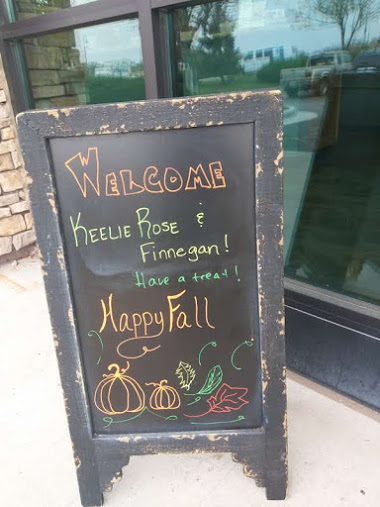 WELCOME
KEELIE ROSE &
Finnegan!
Have a treat!
Happy Fall